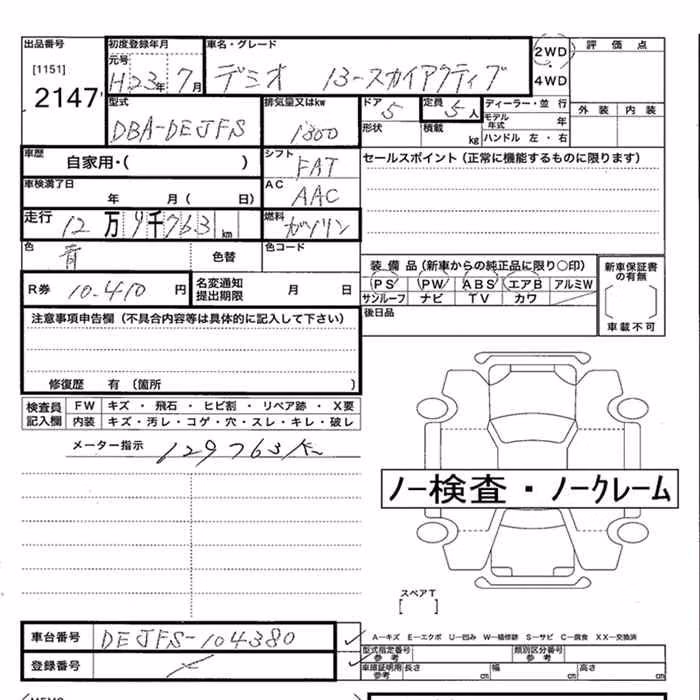 出品番号 初度登録年月 車名・グレード 2WD 評価点
[1151] 元号 4WD
2147 H23年7月 デミオ 13-スカイアクティブ 外装 内装
型式 排気量又はkw ドア 定員 ディーラー・並行
DBA-DEJFS 1300 5 5人 モデル年式 年
形状 積載 kg ハンドル 左・右
車歴 自家用・( ) シフト FAT セールスポイント(正常に機能するものに限ります)
車検満了日 年 月( 日) AC AAC
走行 12万9千763km 燃料 ガソリン
色 青 色替 色コード
装備品(新車からの純正品に限り○印) 新車保証書の有無
R券 10.410円 名変通知提出期限 月 日 PS PW ABS エアB アルミW
サンルーフ ナビ TV カワ
車載不可
注意事項申告欄(不具合内容等は具体的に記入して下さい) 後日品
修復歴 有(箇所 )
検査員記入欄 FW キズ・飛石・ヒビ割・リペア跡・X要
内装 キズ・汚レ・コゲ・穴・スレ・キレ・破レ
メーター指示 129763K
ノー検査・ノークレーム
スペアT
[ ]
車台番号 DEJFS-104380 A-キズ E-エクボ U-凹み W-補修跡 S-サビ C-腐食 XX-交換済
型式指定番号 参考 類別区分番号 参考
登録番号 車庫証明用参考 長さ cm 幅 cm 高さ cm
MEMO